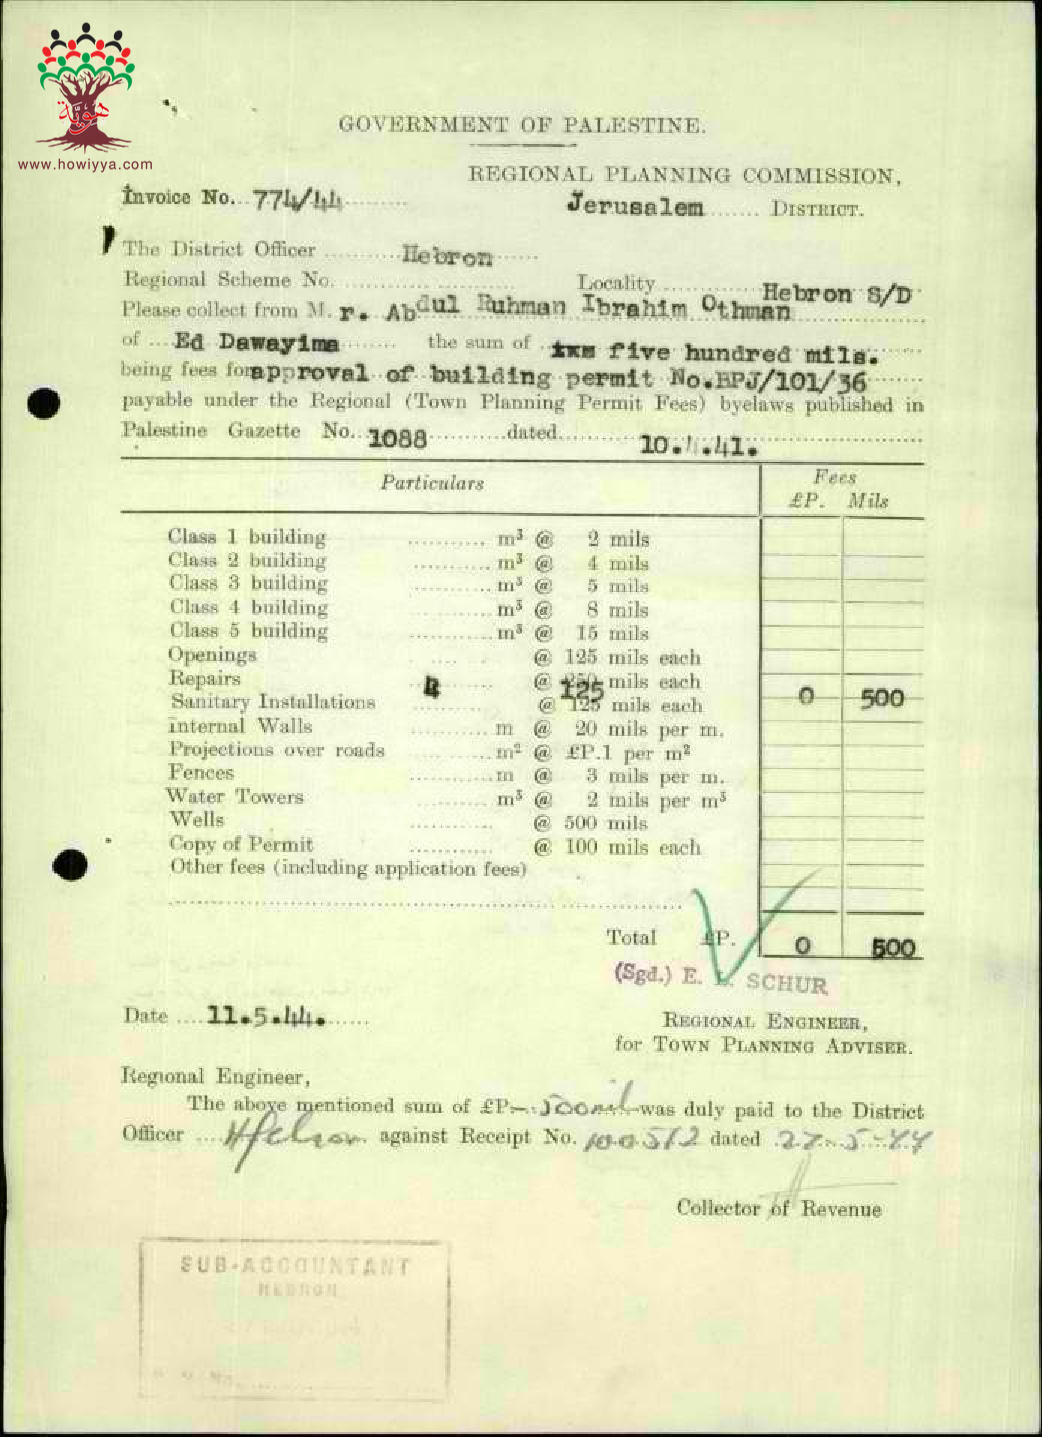 حوية
www.howiyya.com
GOVERNMENT OF PALESTINE.
REGIONAL PLANNING COMMISSION,
Invoice No. 774/44
Jerusalem DISTRICT.
The District Officer Hebron
Regional Scheme No. Locality Hebron S/D
Please collect from M. r. Abdul Ruhman Ibrahim Othman
of Ed Dawayima the sum of five hundred mils.
being fees for approval of building permit No.BPJ/101/36
payable under the Regional (Town Planning Permit Fees) byelaws published in
Palestine Gazette No. 1088 dated 10.4.41.
Particulars Fees
£P. Mils
Class 1 building m³ @ 2 mils
Class 2 building m³ @ 4 mils
Class 3 building m³ @ 5 mils
Class 4 building m³ @ 8 mils
Class 5 building m³ @ 15 mils
Openings @ 125 mils each
Repairs 4 @ 250 mils each
125 0 500
Sanitary Installations @ 125 mils each
Internal Walls m @ 20 mils per m.
Projections over roads m² @ £P.1 per m²
Fences m @ 3 mils per m.
Water Towers m³ @ 2 mils per m³
Wells @ 500 mils
Copy of Permit @ 100 mils each
Other fees (including application fees)
Total £P. 0 500
(Sgd.) E. L. SCHUR
Date 11.5.44.
REGIONAL ENGINEER,
for TOWN PLANNING ADVISER.
Regional Engineer,
The above mentioned sum of £P-.500 mil was duly paid to the District
Officer Hebron against Receipt No. 100512 dated 27-5-44
Collector of Revenue
SUB-ACCOUNTANT
HEBRON